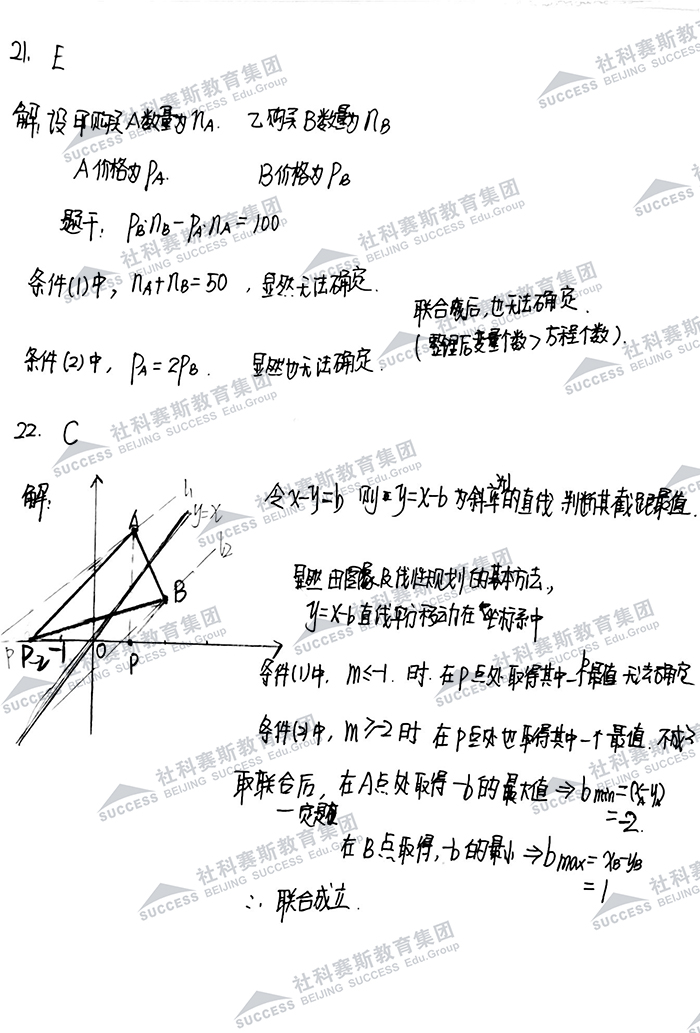 21. E
解: 设甲购买A数量为nA. 乙购买B数量为nB
A价格为PA. B价格为PB
题干: PB·nB-PA·nA=100
条件(1)中, nA+nB=50, 显然无法确定.
联合后, 也无法确定.
(整理后变量个数>方程个数).
条件(2)中, PA=2PB. 显然也无法确定.
22. C
解:
l1
y=x
l2
A
B
P -2 -1 0 P
令x-y=b, 则y=x-b为斜率为1的直线, 判断其截距最值.
显然由图象及线性规划的基本方法,
y=x-b直线平行移动在坐标系中
条件(1)中, m≤-1. 时. 在P点处取得其中一个最值 无法确定
条件(2)中, m≥-2时 在P点处也取得其中一个最值. 不成立
取联合后, 在A点处取得-b的最大值⇒bmin=(xA-yA)
=-2.
在B点取得, -b的最小⇒bmax=xB-yB
=1
∴联合成立.
社科赛斯教育集团
SUCCESS BEIJING SUCCESS Edu.Group